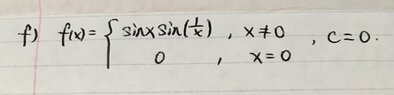 f) f(x) = { sinx sin(1/x) , x ≠ 0 , c = 0.
0 , x = 0